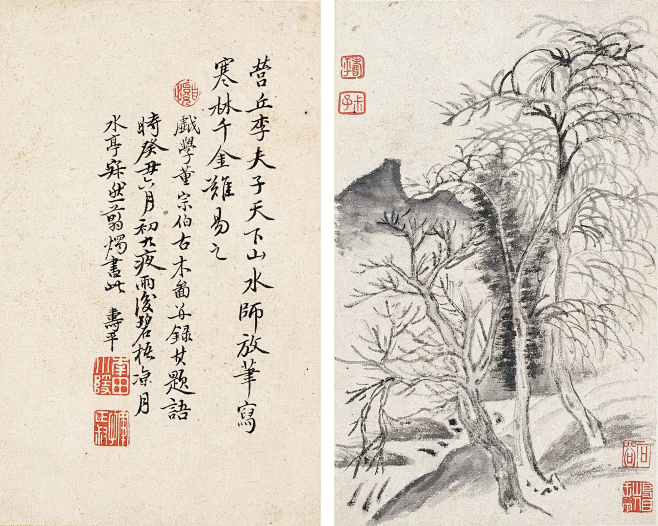 營丘李夫子天下山水師放筆寫
寒林千金難易之
戲學董宗伯古木圖并錄其題語
時癸丑六月初九夜雨後碧梧涼月
水亭寂然翦燭畫此 壽平
南田小隱